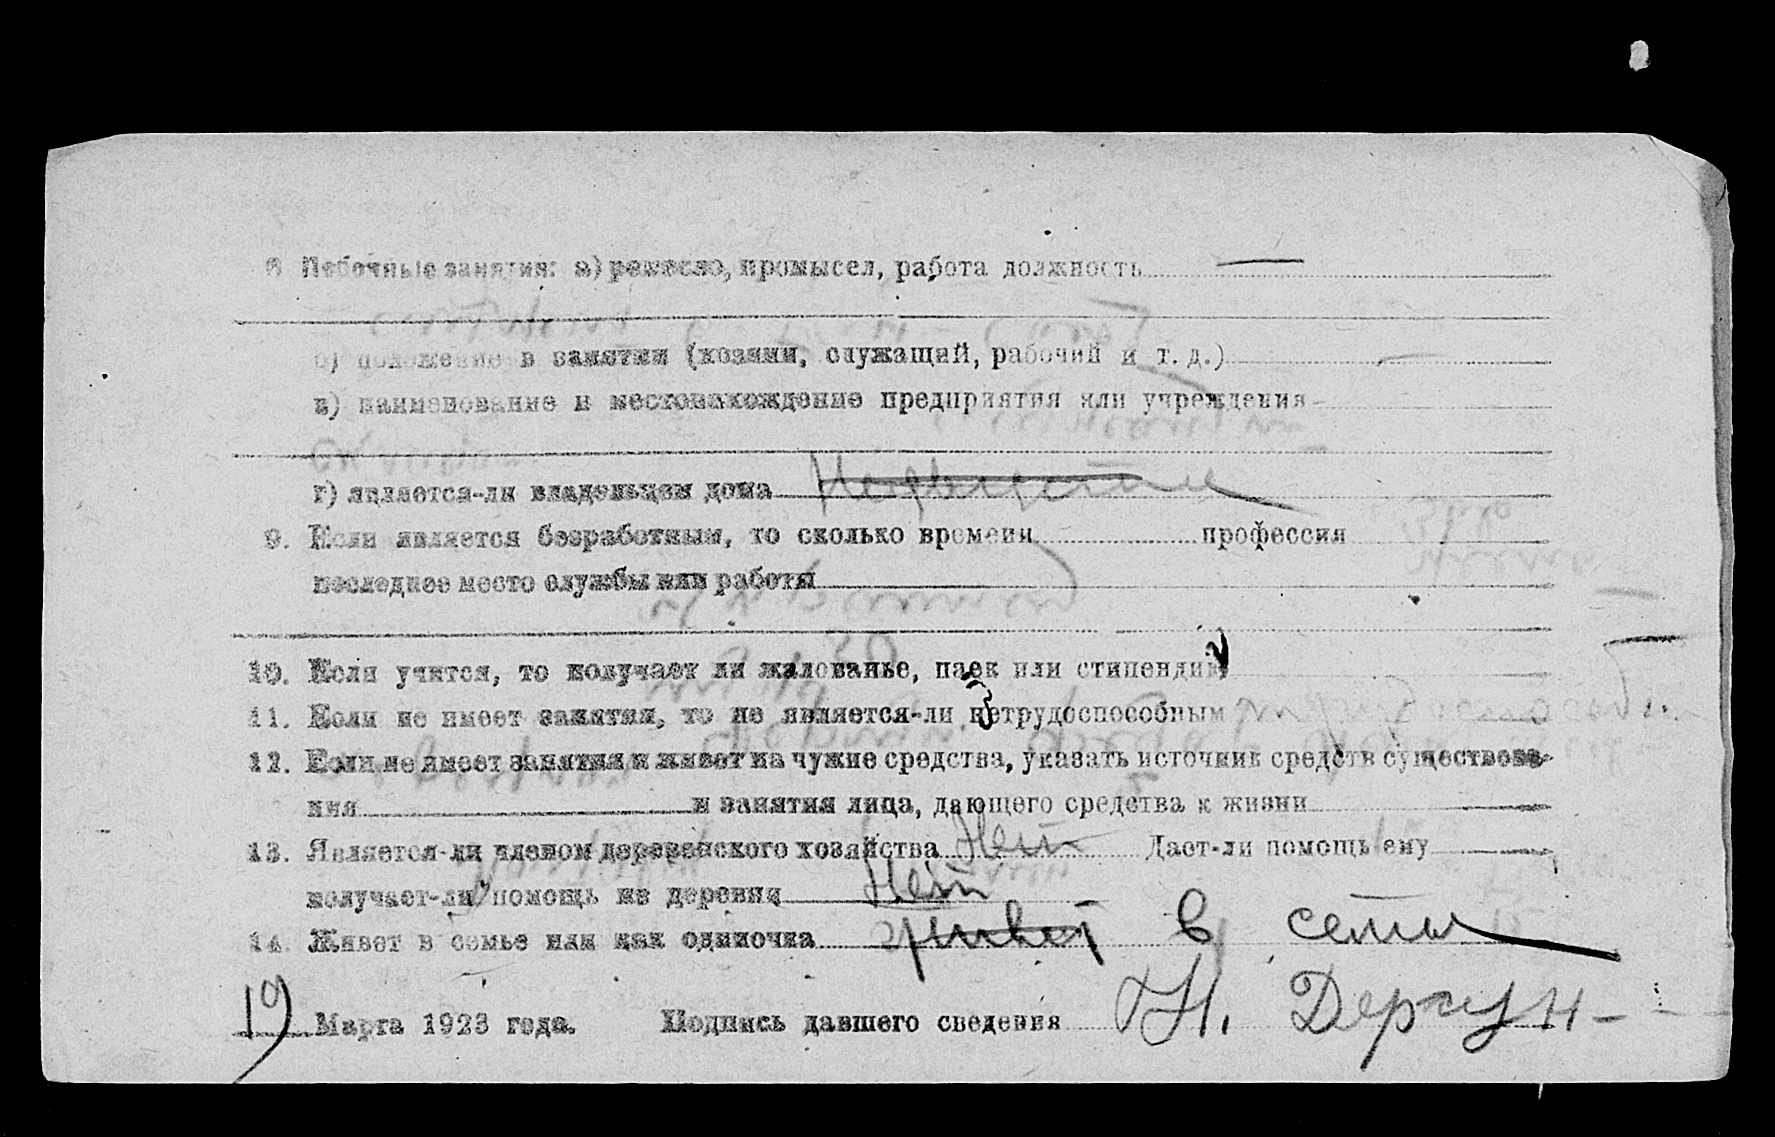 8 Побочные занятия: а) ремесло, промысел, работа должность —
б) положение в занятии (хозяин, служащий, рабочий и т. д.) —
в) наименование и местонахождение предприятия или учреждения
г) является-ли владельцем дома
9. Если является безработным, то сколько времени профессия
последнее место службы или работы
10. Если учится, то получает ли жалованье, паек или стипендию
11. Если не имеет занятия, то не является-ли нетрудоспособным
12. Если не имеет занятия и живет на чужие средства, указать источник средств существова-
ния и занятия лица, дающего средства к жизни —
13. Является-ли членом деревенского хозяйства Нет Дает-ли помощь ему —
получает-ли помощь из деревни Нет
14. Живет в семье или как одиночка живет в семьи
19 Марта 1923 года. Подпись давшего сведения Н.